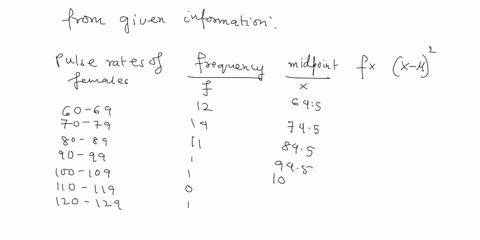 from given information:
Pulse rates of females frequency f midpoint x fx (x-μ)²
60-69 12 64.5
70-79 14 74.5
80-89 11 84.5
90-99 1 94.5
100-109 1 10
110-119 0
120-129 1